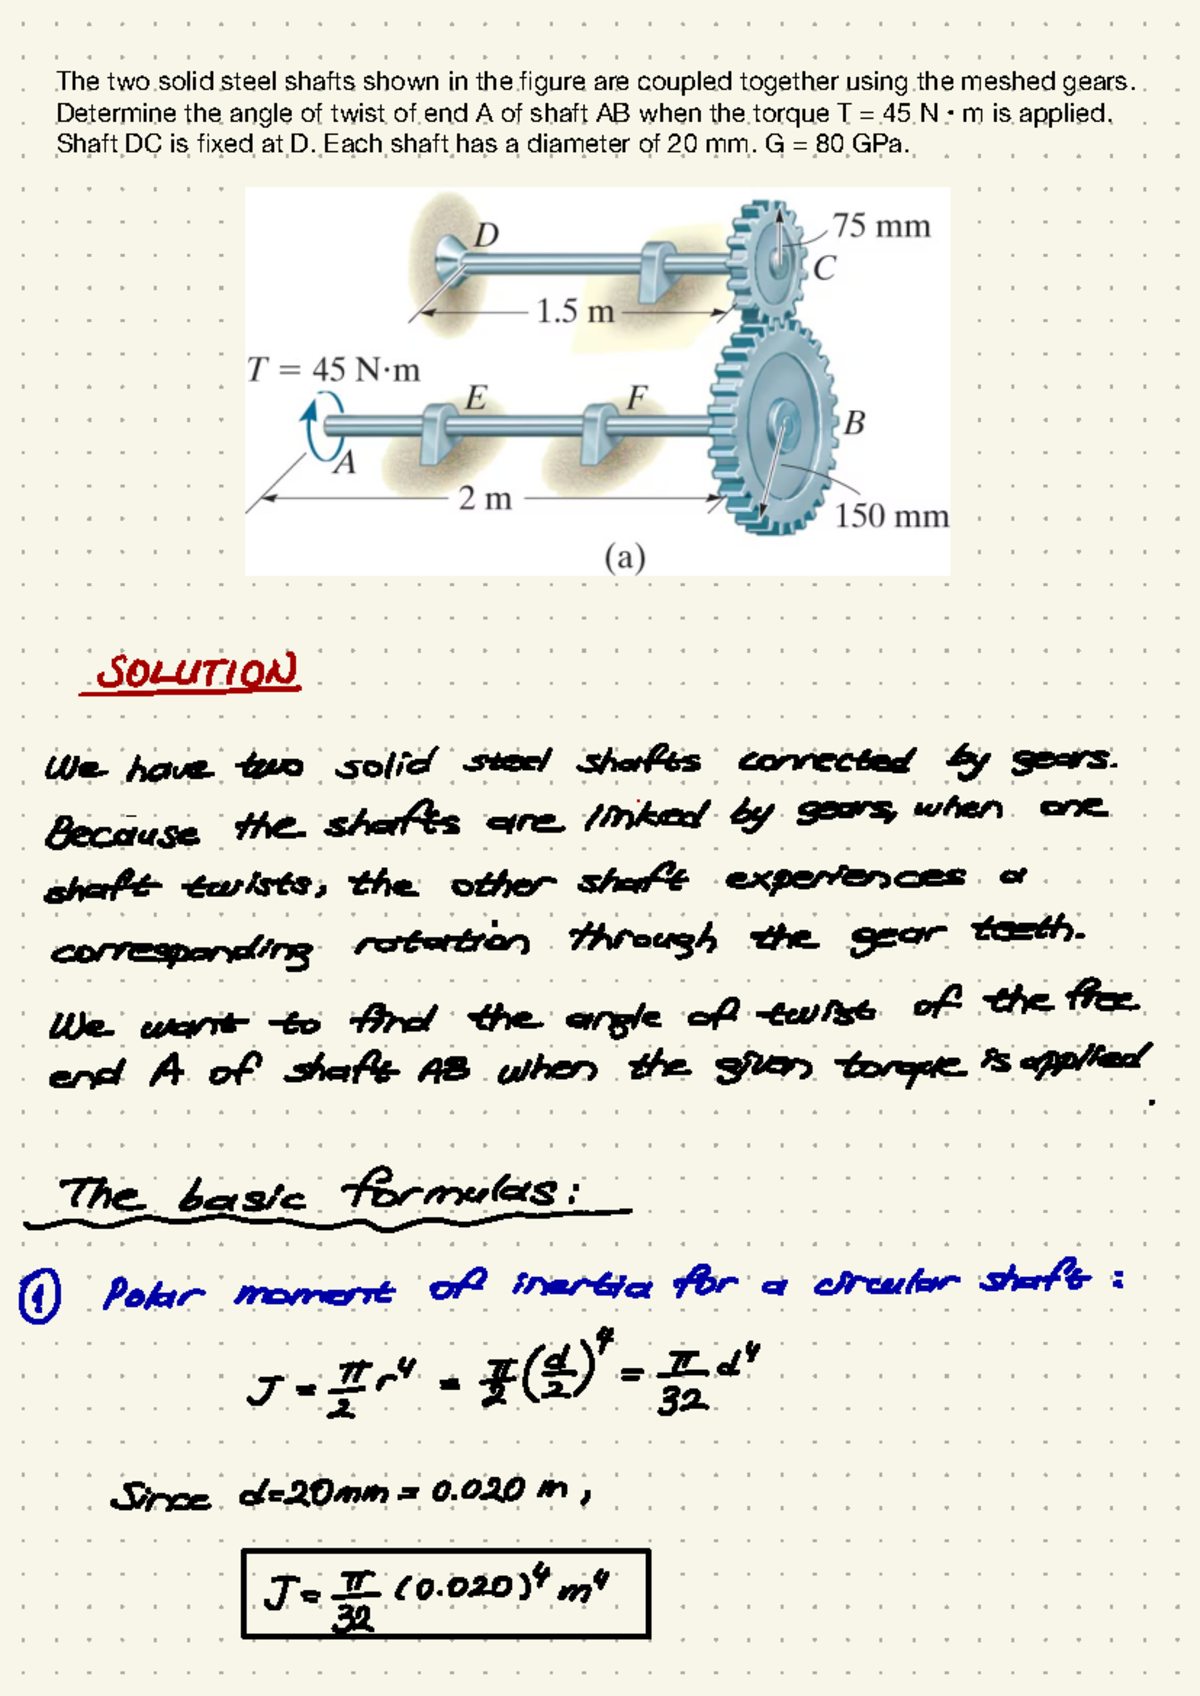 The two solid steel shafts shown in the figure are coupled together using the meshed gears.
Determine the angle of twist of end A of shaft AB when the torque T = 45 N · m is applied.
Shaft DC is fixed at D. Each shaft has a diameter of 20 mm. G = 80 GPa.
D
75 mm
C
1.5 m
T = 45 N·m
E
F
B
A
2 m
150 mm
(a)
SOLUTION
We have two solid steel shafts connected by gears.
Because the shafts are linked by gears, when one
shaft twists, the other shaft experiences a
corresponding rotation through the gear teeth.
We want to find the angle of twist of the free
end A of shaft AB when the given torque is applied.
The basic formulas:
① Polar moment of inertia for a circular shaft:
J = π/2 r⁴ = π/2 (d/2)⁴ = π/32 d⁴
Since d=20mm = 0.020 m,
J = π/32 (0.020)⁴ m⁴